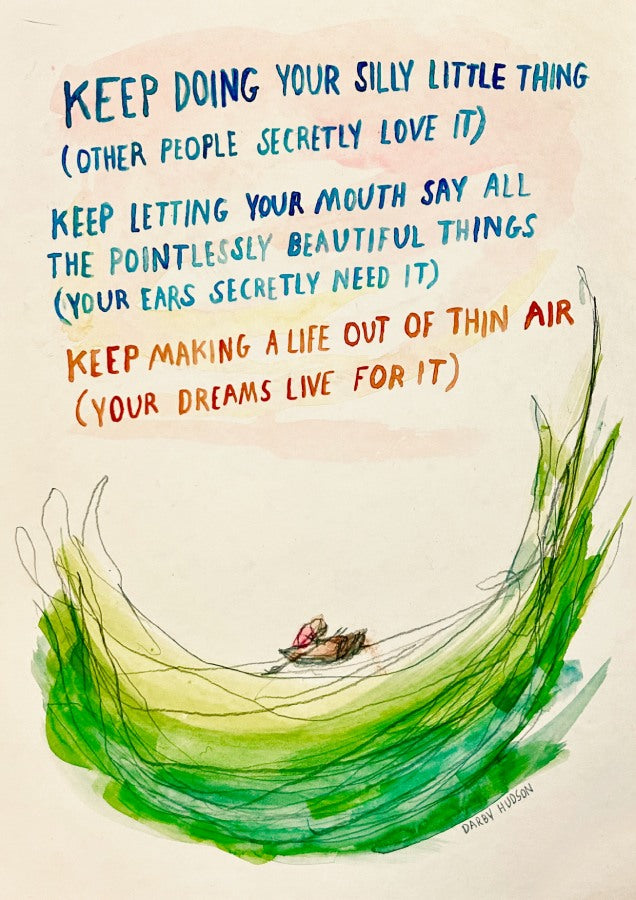 KEEP DOING YOUR SILLY LITTLE THING
(OTHER PEOPLE SECRETLY LOVE IT)
KEEP LETTING YOUR MOUTH SAY ALL
THE POINTLESSLY BEAUTIFUL THINGS
(YOUR EARS SECRETLY NEED IT)
KEEP MAKING A LIFE OUT OF THIN AIR
(YOUR DREAMS LIVE FOR IT)
DARBY HUDSON